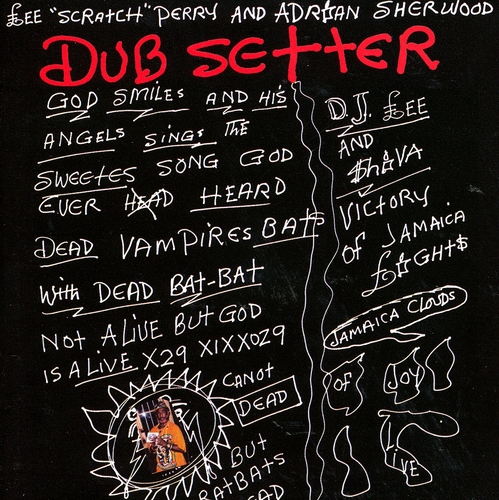 £EE "SCRAtCH" PERRY AND ADRIAN SHERWOOD
DUB SEttER
GOD SMILES AND HIS
ANGELS SINGS THE
SWEETES SONG GOD
EVER HEAD HEARD
DEAD VAMPIRES BATS
With DEAD BAT-BAT
NOt ALIVE BUT GOD
IS ALIVE X29 XIXXOZ9
CANOT
DEAD
BUT
BATBATS
DEAD
D.J. £EE
AND
$hiVA
VICTORY
of JAMAICA
£iGHt$
JAMAICA CLOUDS
OF JOY
LIVE